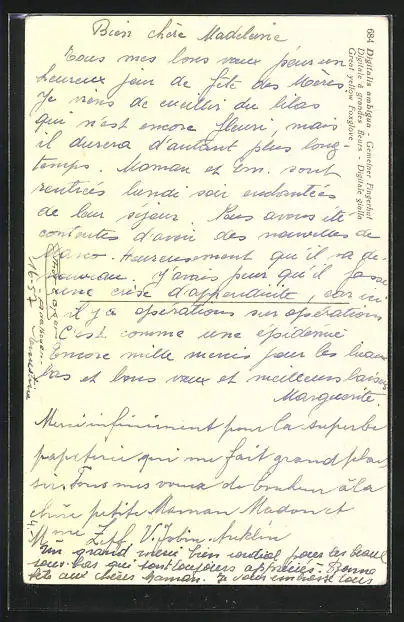 Bien chère Madeleine
Tous mes bons vœux pour un
heureux jour de fête des Mères
Je viens de cueillir du lilas
qui n'est encore fleuri, mais
il durera d'autant plus long
temps. Maman et Em. sont
rentrées lundi soir enchantées
de leur séjour. Nous avons été
contentes d'avoir des nouvelles de
Heureusement qu'il va de
nouveau. J'avais peur qu'il fasse
une crise d'appendicite, car ici
il y a opérations sur opérations
C'est comme une épidémie
Encore mille mercis pour les beaux
bas et bons vœux et meilleurs baisers
Marguerite.
Merci infiniment pour la superbe
papeterie qui me fait grand plai
sir. Tous mes vœux de bonheur à la
chère petite Maman Madon et
Mme Zipf V. Jobin-Anklin
Un grand merci bien cordial pour les beaux
sous-bas qui sont toujours appréciés. Bonne
fête aux chères Maman. Je vous embrasse tous
684 Digitalis ambigua - Gemeiner Fingerhut
Digitale à grandes fleurs - Digitale gialla
Great yellow Foxglove